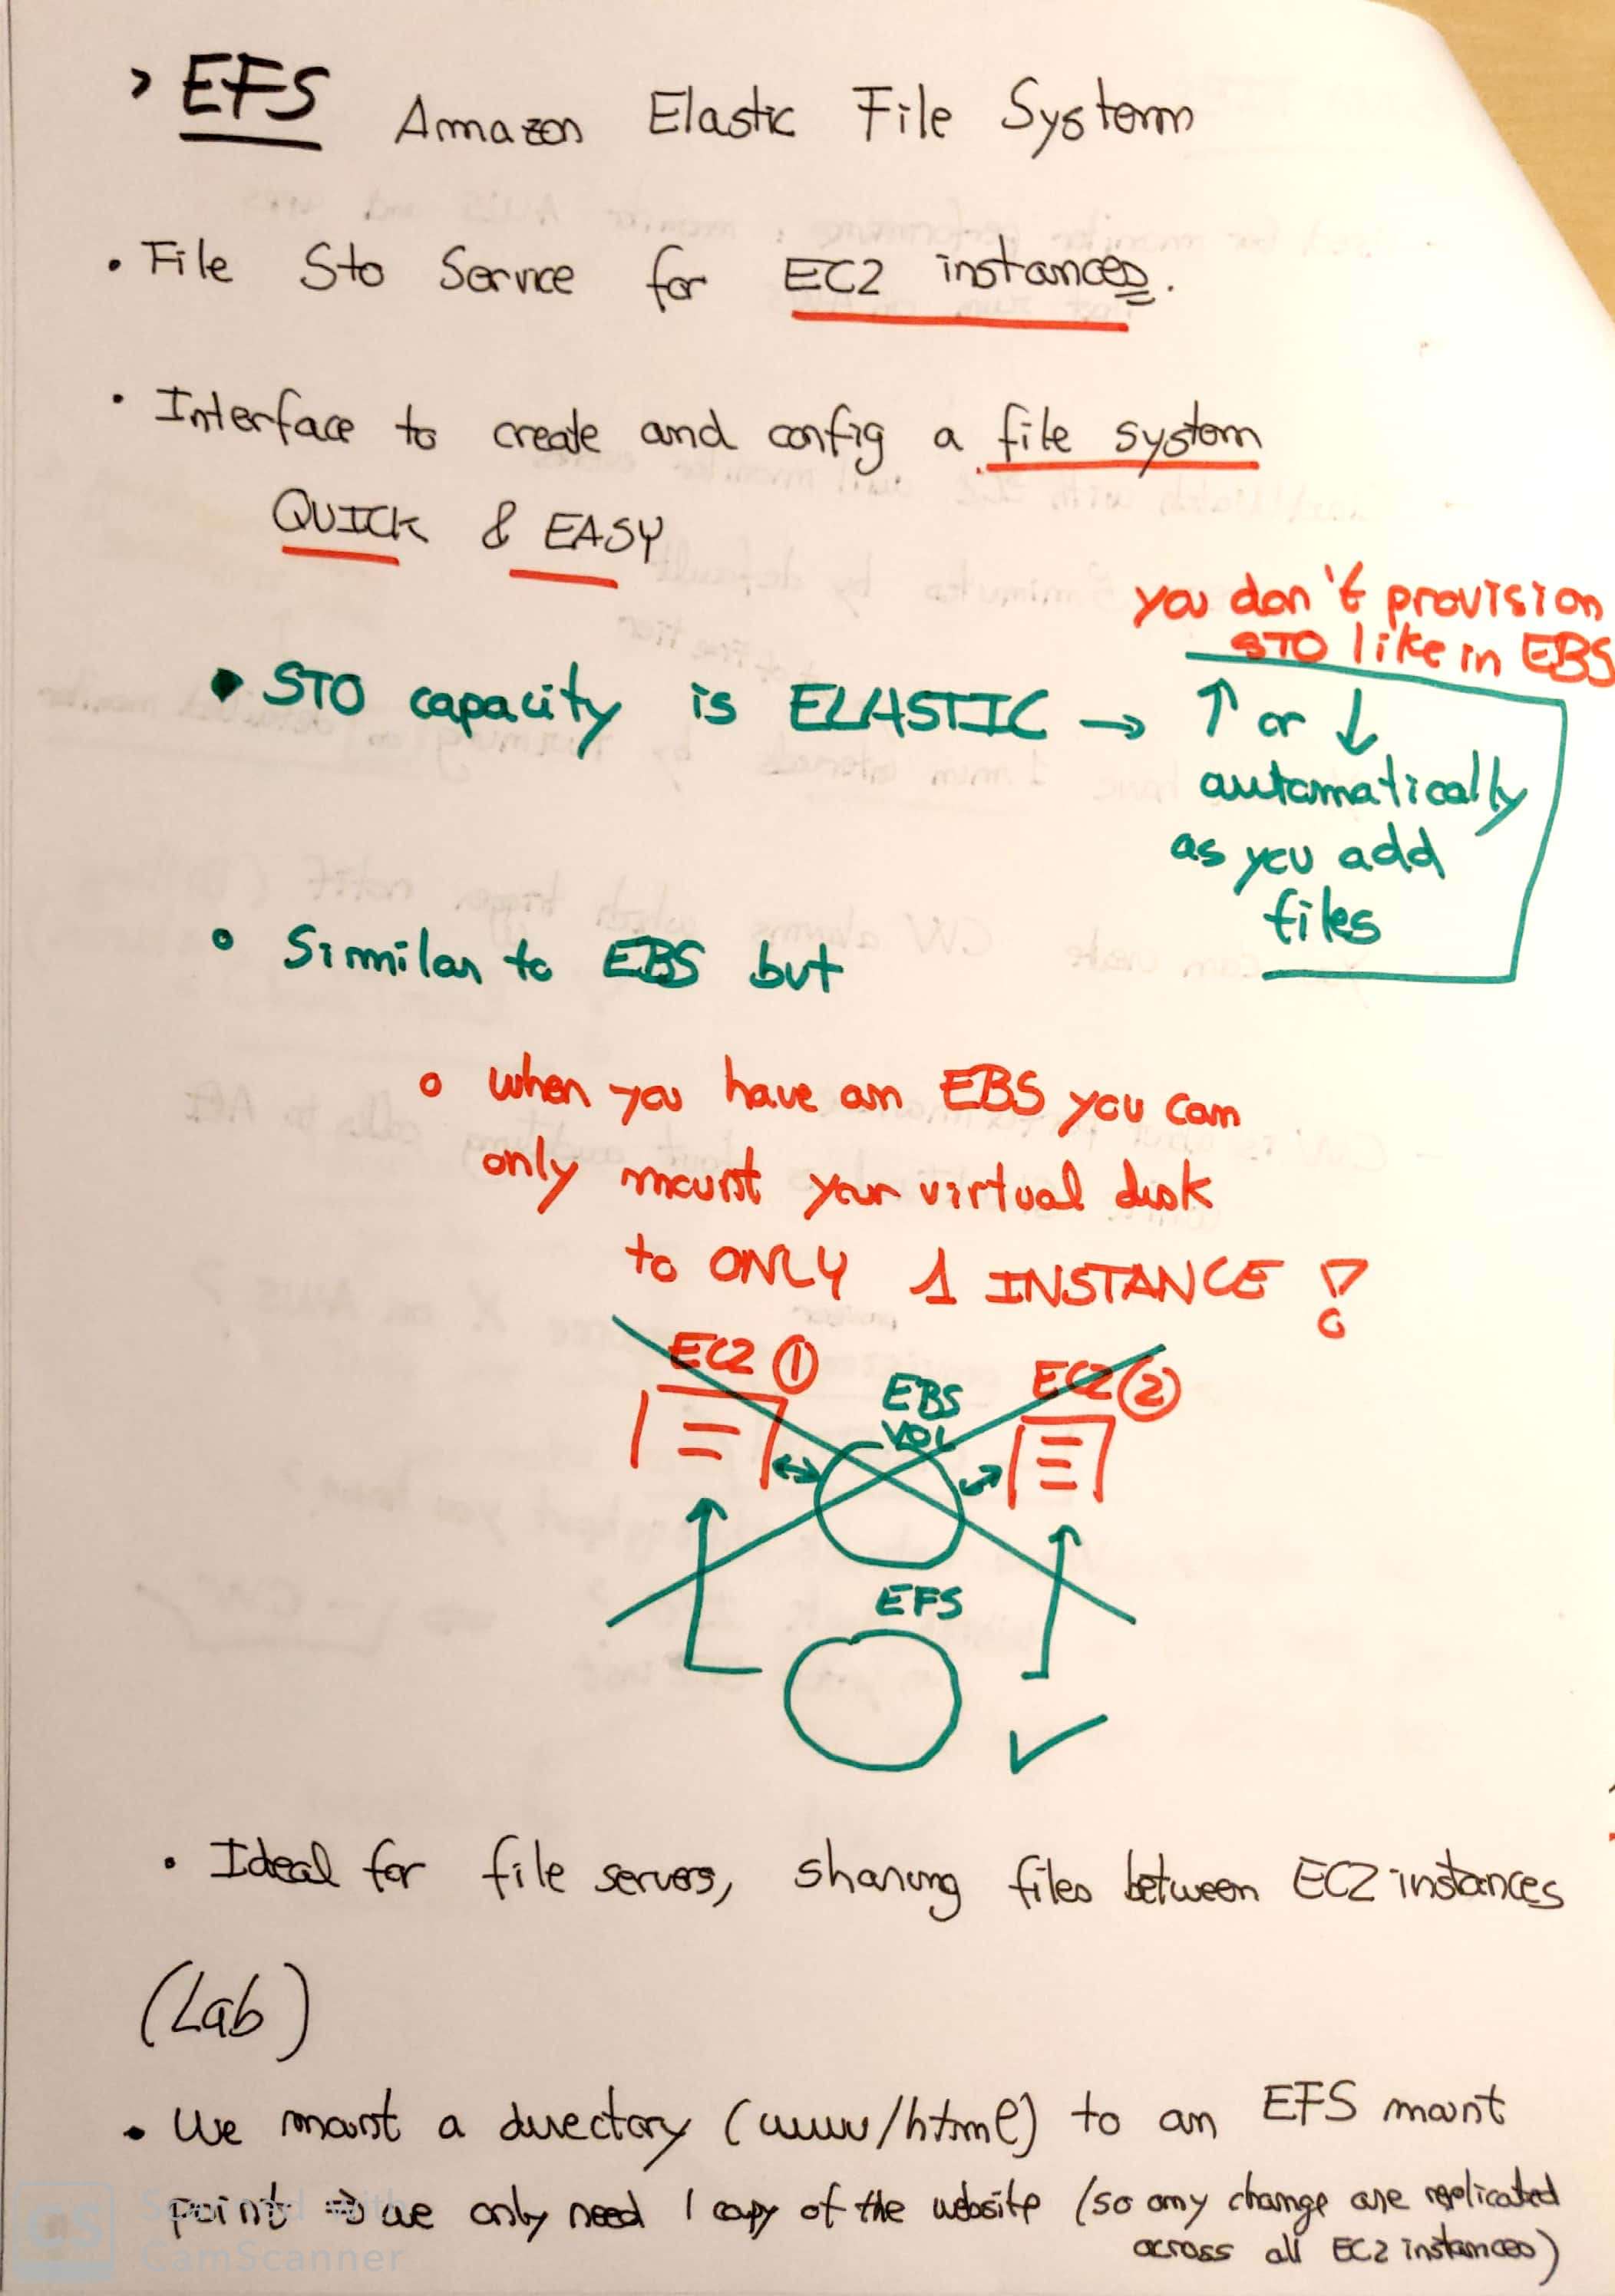 > EFS Amazon Elastic File System
• File Sto Service for EC2 instances.
• Interface to create and config a file system
QUICK & EASY
you don't provision
STO like in EBS
• STO capacity is ELASTIC → ↑ or ↓
automatically
as you add
files
• Similar to EBS but
• when you have an EBS you can
only mount your virtual disk
to ONLY 1 INSTANCE !
EC2 ①
EBS
VOL
EC2 ②
EFS
✓
• Ideal for file servers, sharing files between EC2 instances
(Lab)
• We mount a directory (www/html) to an EFS mount
point ⇒ we only need 1 copy of the website (so any change are replicated
across all EC2 instances)
CS
Scanned with
CamScanner